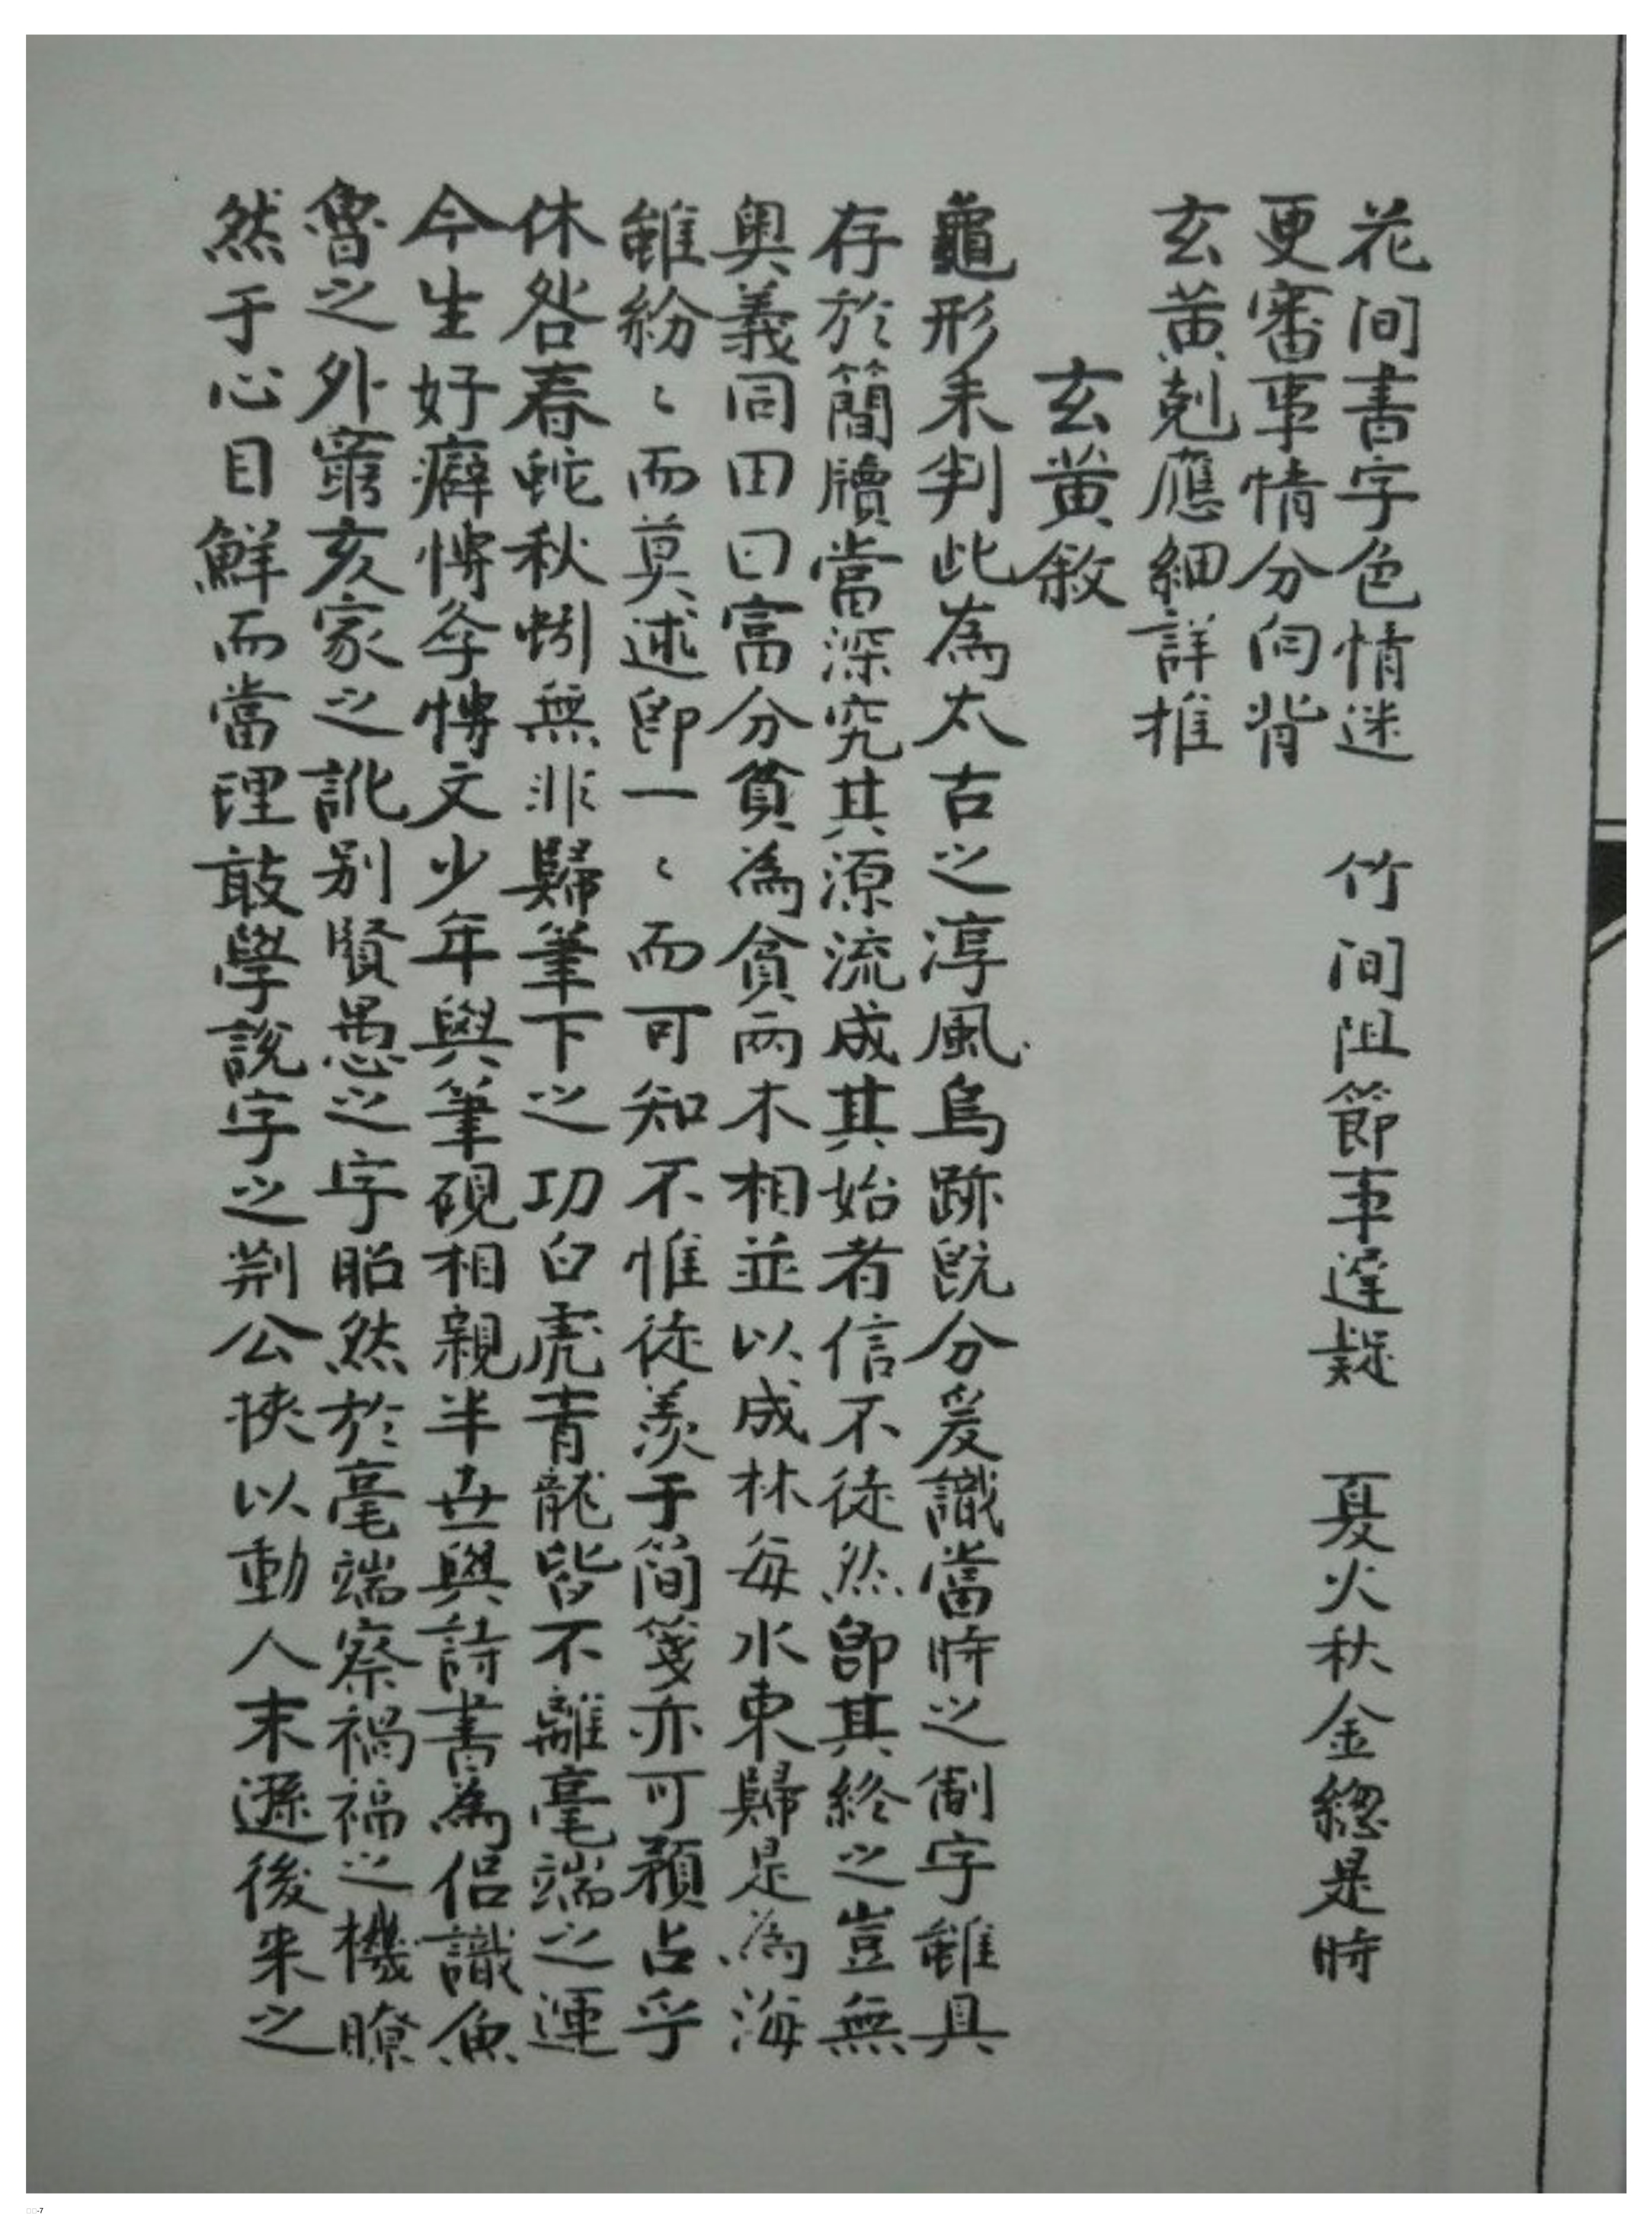 花间書字色情迷　竹间阻節事遲疑　夏火秋金總是時
更審事情分向背
玄黄剋應細詳推
玄黄敘
龜形未判此為太古之淳風鳥跡既分爰識當時之制字雖具
存於簡牘當深究其源流成其始者信不徒然即其終之豈無
奥義同田曰富分貝為貧兩木相並以成林每水東歸是為海
雖紛〻而莫述即一〻而可知不惟徒羨于简箋亦可預占乎
休咎春蛇秋蚓無非歸筆下之功白虎青龍皆不離毫端之運
今生好癖博孝博文少年與筆硯相親半世與詩書為侣識魚
魯之外窮亥家之訛别賢愚之字胎然於毫端察禍福之機瞭
然于心目鮮而當理敢學說字之荆公挾以動人末遜後来之
-7